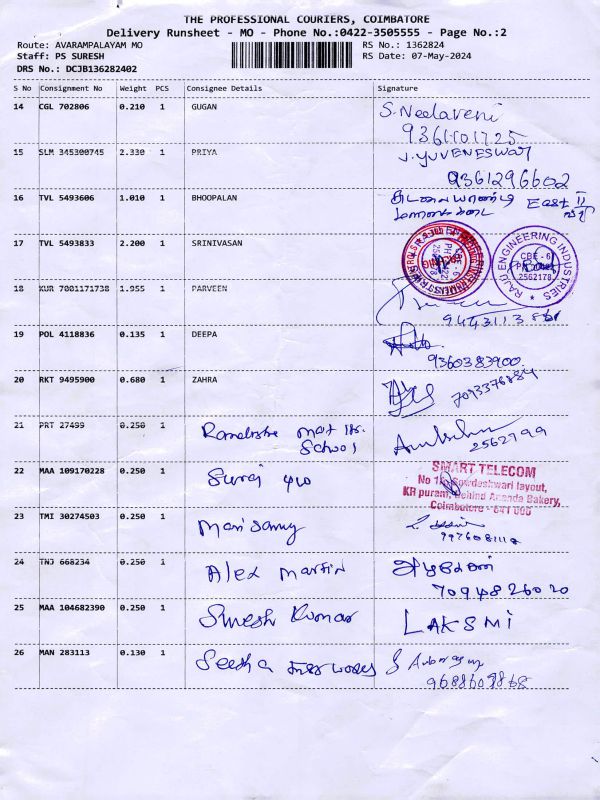 THE PROFESSIONAL COURIERS, COIMBATORE
Delivery Runsheet - MO - Phone No.:0422-3505555 - Page No.:2
Route: AVARAMPALAYAM MO RS No.: 1362824
Staff: PS SURESH RS Date: 07-May-2024
DRS No.: DCJB136282402
S No Consignment No Weight PCS Consignee Details Signature
14 CGL 702806 0.210 1 GUGAN S. Neelaveni
9361101725
15 SLM 345300745 2.330 1 PRIYA J. YUVENESWARI
9361296602
16 TVL 5493606 1.010 1 BHOOPALAN East II
17 TVL 5493833 2.200 1 SRINIVASAN
RAJU ENGINEERING INDUSTRIES
CBE - 6
2562178
18 KUR 7001171738 1.955 1 PARVEEN
19 POL 4118836 0.135 1 DEEPA
9360383900
20 RKT 9495900 0.680 1 ZAHRA 7093376884
21 PRT 27499 0.250 1 mat hr.
School 2562799
22 MAA 109170228 0.250 1 Suraj SMART TELECOM
layout,
KR puram, Behind Ananda Bakery,
Coimbatore - 641 006
23 TMI 30274503 0.250 1 Marisamy
24 TNJ 668234 0.250 1 Alex Martin
7094826020
25 MAA 104682390 0.250 1 Suresh Kumar LAKSMI
26 MAN 283113 0.130 1
9688609868